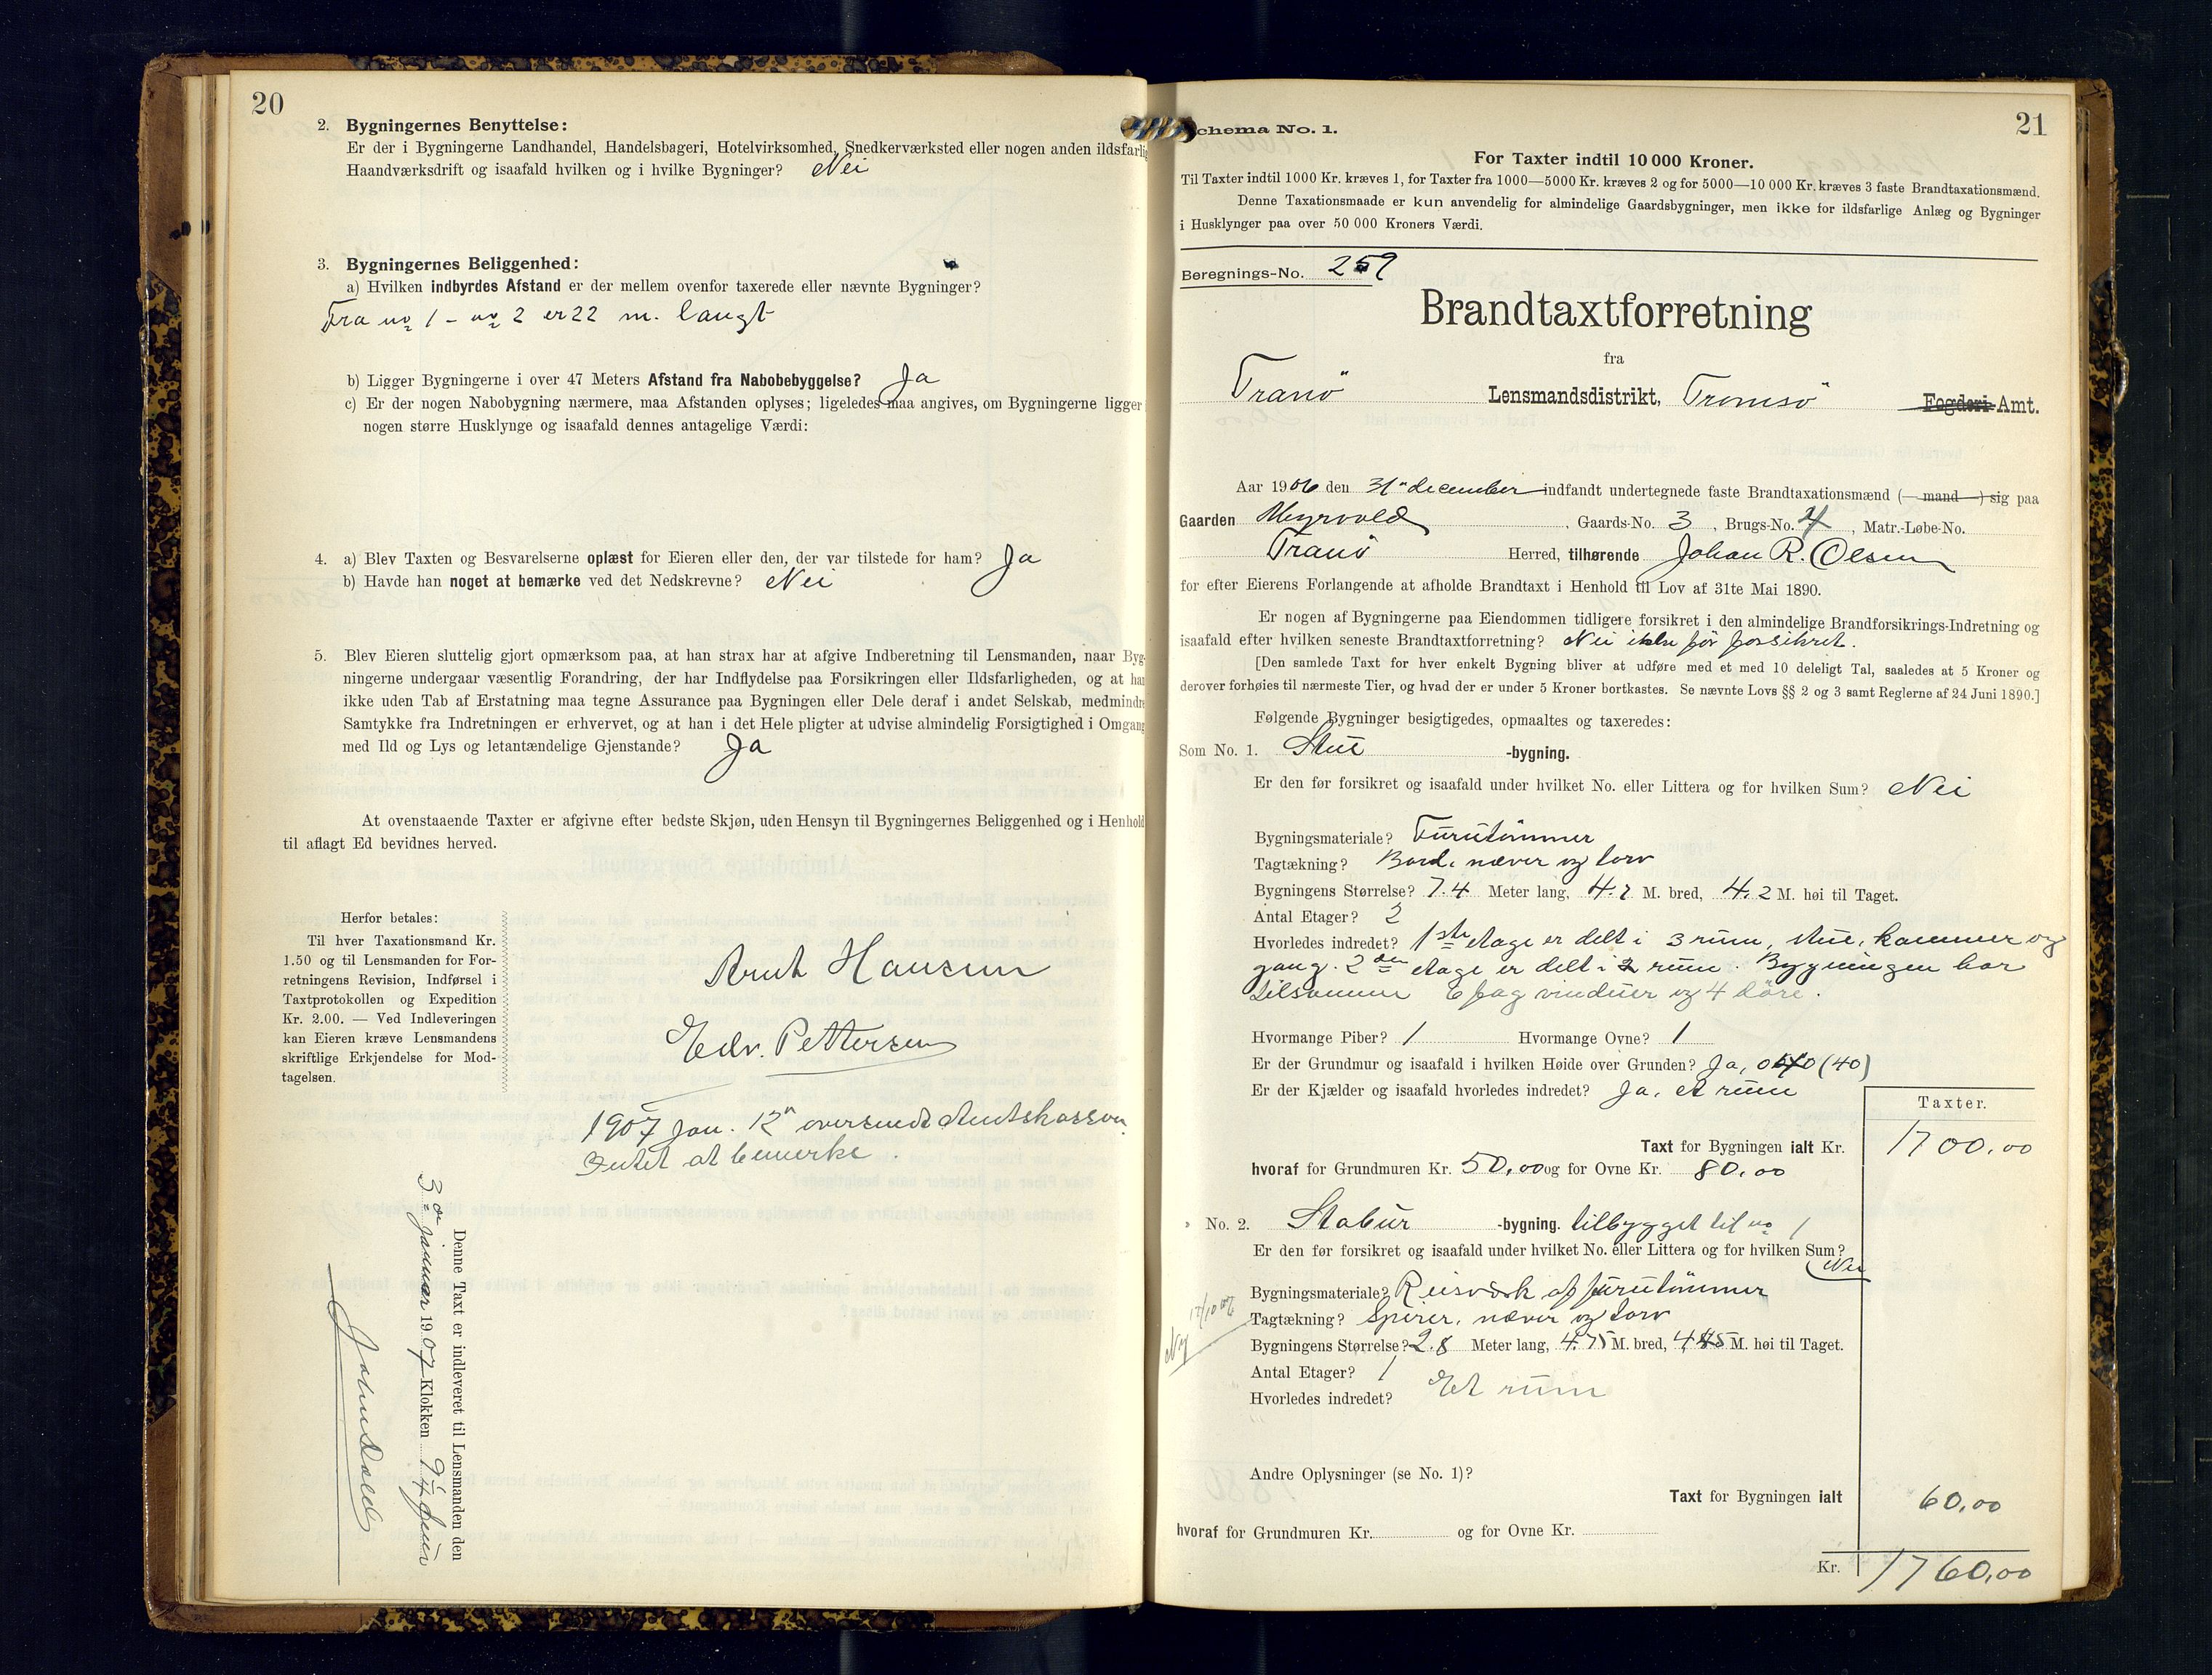 20
2. Bygningernes Benyttelse:
Er der i Bygningerne Landhandel, Handelsbageri, Hotelvirksomhed, Snedkerværksted eller nogen anden ildsfarlig
Haandværksdrift og isaafald hvilken og i hvilke Bygninger? Nei
3. Bygningernes Beliggenhed:
a) Hvilken indbyrdes Afstand er der mellem ovenfor taxerede eller nævnte Bygninger?
Fra no 1 - no 2 er 22 m. langt
b) Ligger Bygningerne i over 47 Meters Afstand fra Nabobebyggelse? Ja
c) Er der nogen Nabobygning nærmere, maa Afstanden oplyses; ligeledes maa angives, om Bygningerne ligger
nogen større Husklynge og isaafald dennes antagelige Værdi:
4. a) Blev Taxten og Besvarelserne oplæst for Eieren eller den, der var tilstede for ham? Ja
b) Havde han noget at bemærke ved det Nedskrevne? Nei
5. Blev Eieren sluttelig gjort opmærksom paa, at han strax har at afgive Indberetning til Lensmanden, naar Byg-
ningerne undergaar væsentlig Forandring, der har Indflydelse paa Forsikringen eller Ildsfarligheden, og at han
ikke uden Tab af Erstatning maa tegne Assurance paa Bygningen eller Dele deraf i andet Selskab, medmindre
Samtykke fra Indretningen er erhvervet, og at han i det Hele pligter at udvise almindelig Forsigtighed i Omgang
med Ild og Lys og letantændelige Gjenstande? Ja
At ovenstaaende Taxter er afgivne efter bedste Skjøn, uden Hensyn til Bygningernes Beliggenhed og i Henhold
til aflagt Ed bevidnes herved.
Herfor betales:
Til hver Taxationsmand Kr.
1.50 og til Lensmanden for For-
retningens Revision, Indførsel i
Taxtprotokollen og Expedition
Kr. 2.00. — Ved Indleveringen
kan Eieren kræve Lensmandens
skriftlige Erkjendelse for Mod-
tagelsen.
Arnt Hansen
Edv. Pettersen
1907 Jan. 12" oversendt Amtskassen.
Intet at bemerke.
Denne Taxt er indleveret til Lensmanden den
3die januar 1907 Klokken 9
21
Schema No. 1.
For Taxter indtil 10 000 Kroner.
Til Taxter indtil 1000 Kr. kræves 1, for Taxter fra 1000—5000 Kr. kræves 2 og for 5000—10 000 Kr. kræves 3 faste Brandtaxationsmænd.
Denne Taxationsmaade er kun anvendelig for almindelige Gaardsbygninger, men ikke for ildsfarlige Anlæg og Bygninger
i Husklynger paa over 50 000 Kroners Værdi.
Beregnings-No. 259
Brandtaxtforretning
fra
Tranö Lensmandsdistrikt, Tromsö Fogderi Amt.
Aar 1906 den 31" december indfandt undertegnede faste Brandtaxationsmænd (—mand—) sig paa
Gaarden Myrvold, Gaards-No. 3, Brugs-No. 4, Matr.-Løbe-No.
Tranö Herred, tilhørende Johan R. Olsen
for efter Eierens Forlangende at afholde Brandtaxt i Henhold til Lov af 31te Mai 1890.
Er nogen af Bygningerne paa Eiendommen tidligere forsikret i den almindelige Brandforsikrings-Indretning og
isaafald efter hvilken seneste Brandtaxtforretning? Nei ikke för forsikret.
[Den samlede Taxt for hver enkelt Bygning bliver at udføre med et med 10 deleligt Tal, saaledes at 5 Kroner og
derover forhøies til nærmeste Tier, og hvad der er under 5 Kroner bortkastes. Se nævnte Lovs §§ 2 og 3 samt Reglerne af 24 Juni 1890.]
Følgende Bygninger besigtigedes, opmaaltes og taxeredes:
Som No. 1. Stue -bygning.
Er den før forsikret og isaafald under hvilket No. eller Littera og for hvilken Sum? Nei
Bygningsmateriale? Furutömmer
Tagtækning? Bord, næver og torv
Bygningens Størrelse? 7.4 Meter lang, 4.7 M. bred, 4.2 M. høi til Taget.
Antal Etager? 2
Hvorledes indredet? 1ste etage er delt i 3 rum, stue, kammer og
gang. 2den etage er delt i 2 rum. Bygningen har
tilsammen 6 fag vinduer og 4 döre.
Hvormange Piber? 1 Hvormange Ovne? 1
Er der Grundmur og isaafald i hvilken Høide over Grunden? Ja, 040 (40)
Er der Kjælder og isaafald hvorledes indredet? Ja, et rum
Taxter.
Taxt for Bygningen ialt Kr. 1700,00
hvoraf for Grundmuren Kr. 50,00 og for Ovne Kr. 80,00
No. 2. Stabur -bygning. tilbygget til no 1
Er den før forsikret og isaafald under hvilket No. eller Littera og for hvilken Sum?
Nei
Bygningsmateriale? Reisværk af furutömmer
Tagtækning? Spirer, næver og torv
Bygningens Størrelse? 2.8 Meter lang, 4.75 M. bred, M. høi til Taget.
Ny
Antal Etager? 1
Hvorledes indredet? Et rum
Andre Oplysninger (se No. 1)?
Taxt for Bygningen ialt 60,00
hvoraf for Grundmuren Kr. og for Ovne Kr.
Kr. 1760,00